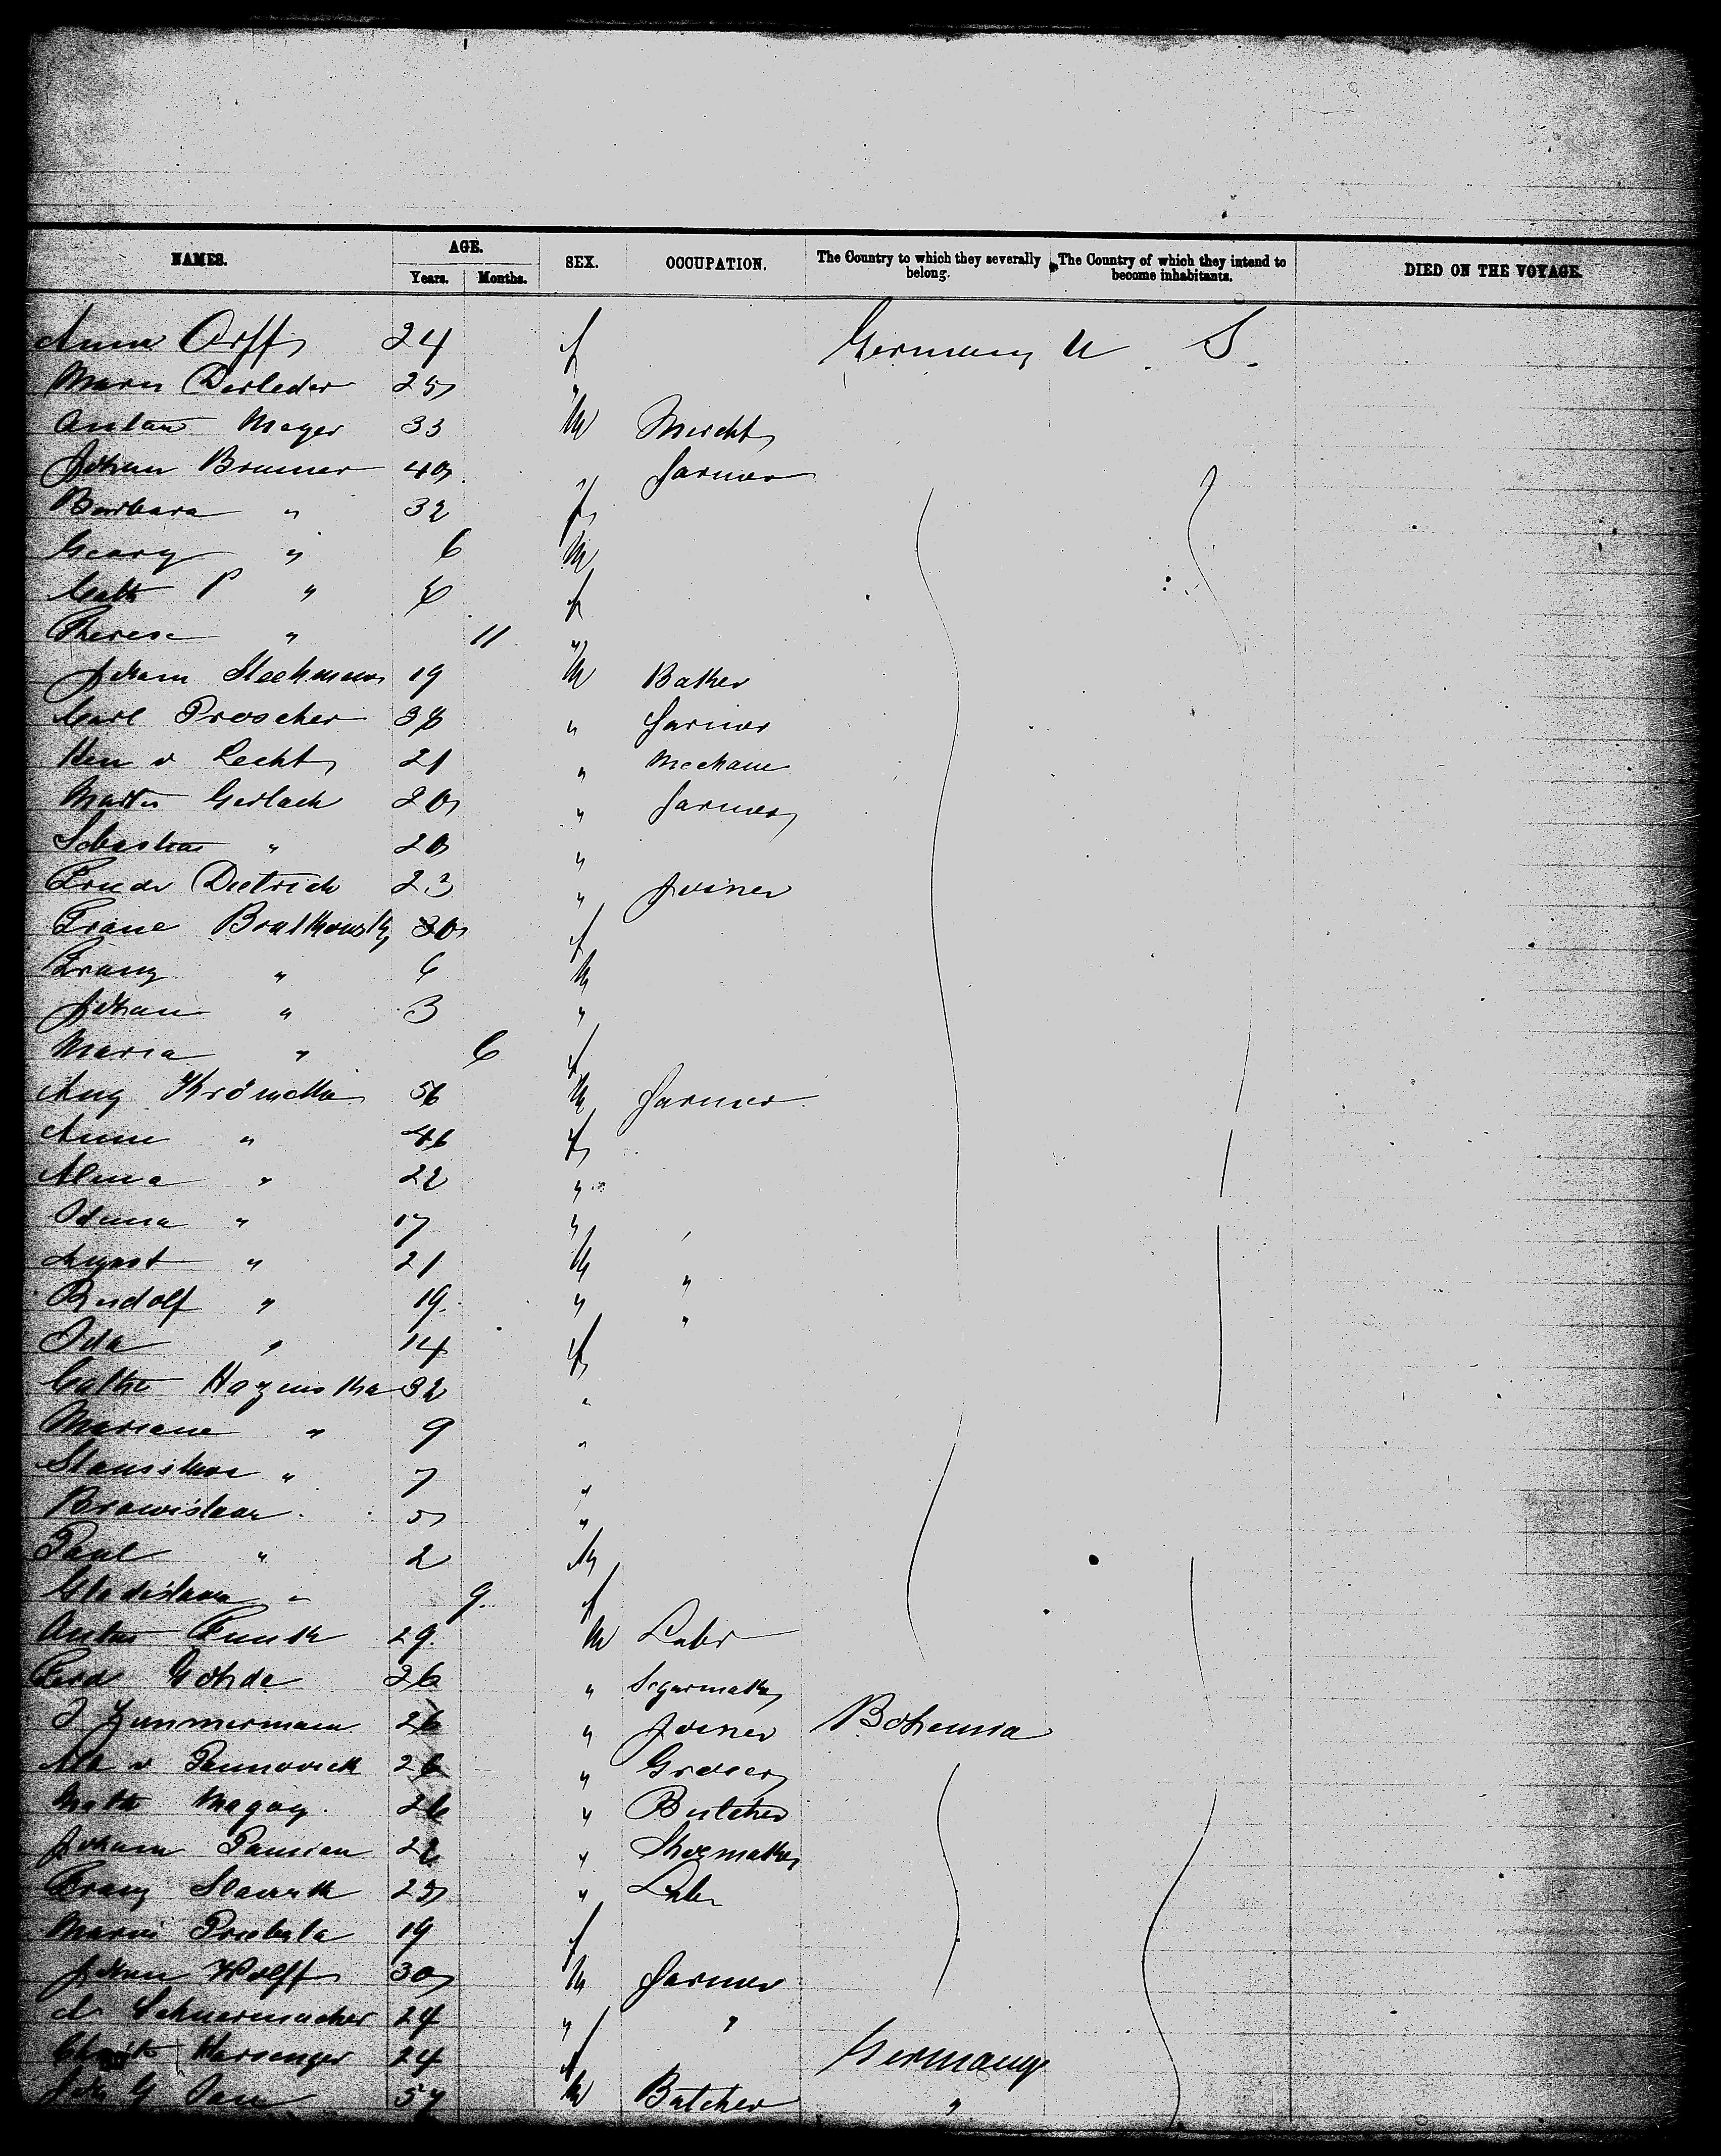 NAMES. AGE. SEX. OCCUPATION. The Country to which they severally belong. The Country of which they intend to become inhabitants. DIED ON THE VOYAGE.
Years. Months.
Anna Orff 24 f Germany U. S.
Marie Derleder 25 "
Anton Meyer 33 M Mercht
Johann Brunner 40 " farmer
Barbara " 32 f
Georg " 6 M
Cath P " f
Therese " 11 "
Johann Steckmann 19 M Baker
Carl Proscher 38 " farmer
Hen v Lecht 21 " Mechanic
Martin Gerlach 20 " farmer
Sebastian " 20 "
Friedr Dietrich 23 " Joiner
Franc 30 f
Franz " 6 M
Johann " 3 "
Maria " 6 f
Aug 56 M farmer
Anna " 46 f
Alma " 22 "
Iduna " 17 "
August " 21 M "
Rudolf " 19 " "
Ida " 14 f
Cath 32 "
Mariane " 9 "
" 7 "
5 "
Paul " 2 M
" 9 f
Anton Funk 29 M Labr
Ferd Gohde 26 " Segarmaker
J Zimmermann 26 " Joiner Bohemia
v 26 " Grocer
Math 26 " Butcher
Johann Damian 22 " Shoemaker
Franz 25 " Labr
Marie 19 f
Johann Wolff 30 M farmer
A Schuermacher 24 " "
24 f Germany
Joh G 57 M Butcher "